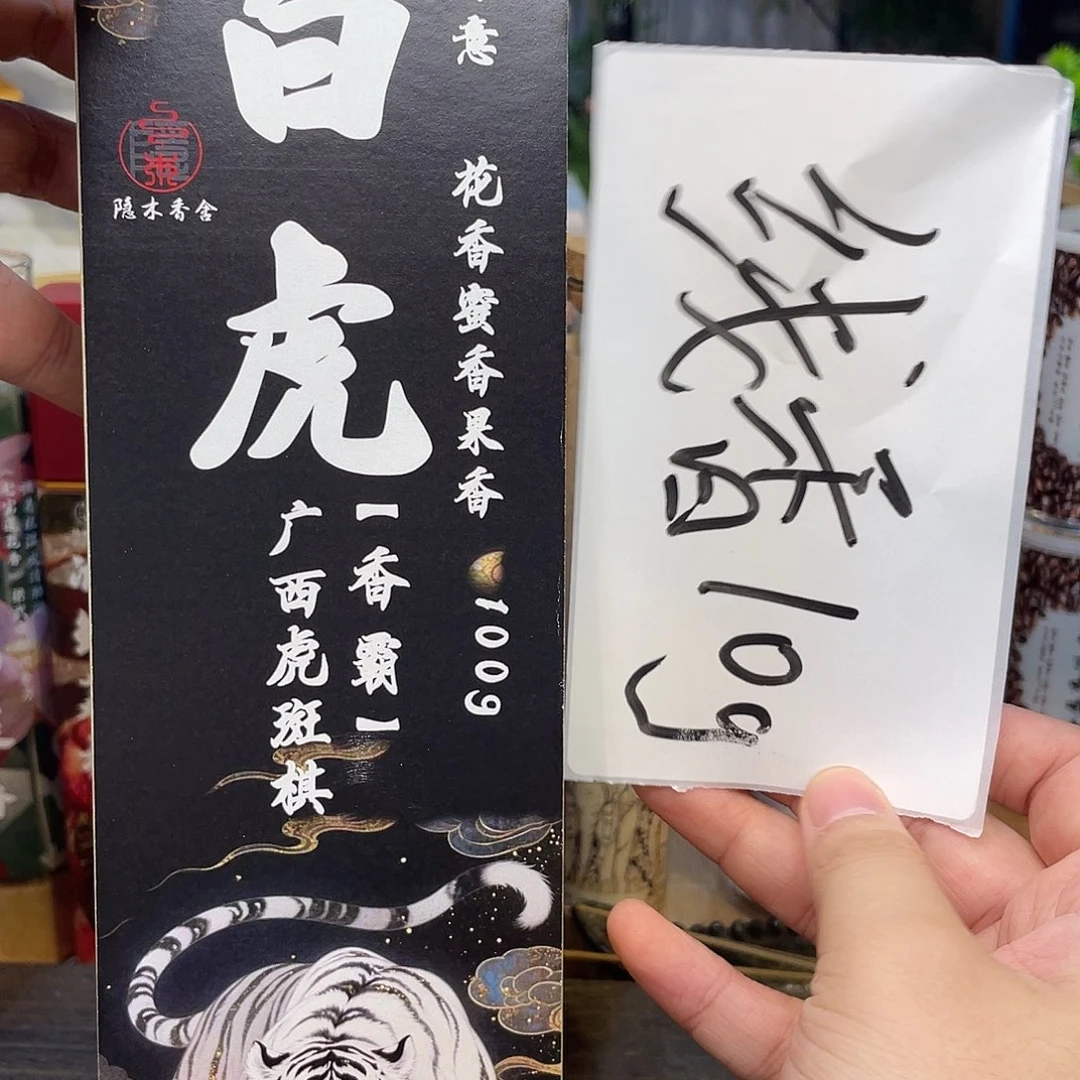 意
花香蜜香果香
100g
白虎
【香霸】
广西虎斑棋
隐木香舍
线香10g